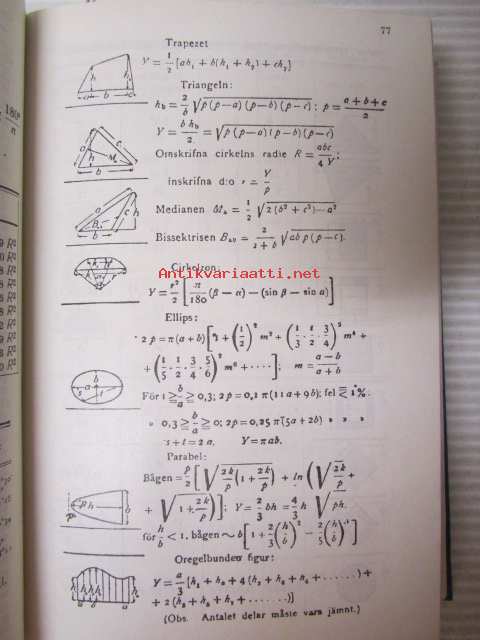 77
Trapezet
Y = 1/2 [ah₁ + b(h₁ + h₂) + ch₂]
Triangeln:
h_b = 2/b √p(p—a)(p—b)(p—c) ; p = (a + b + c)/2
Y = b h_b/2 = √p(p—a)(p—b)(p—c)
Omskrifna cirkelns radie R = abc/4Y ;
inskrifna d:o r = Y/p
Medianen Mₐ = 1/2 √2(b² + c²)—a²
Bissektrisen
√ab p(p—c).
Antikvariaatti.net
Cirkelzon
Y = r²/2 [π/180 (β — α) — (sin β — sin α)]
Ellips:
2p = π(a + b) [1 + (1/2)² m² + (1/2 · 3/4)² m⁴ +
m = (a — b)/(a + b)
För 1 ≥ b/a ≥ 0,3; 2p = 0,2 π(11a + 9b); fel ≤ 1%.
» 0,3 ≥ b/a ≥ 0; 2p = 0,25 π(5a + 2b) » » »
s + t = 2a, Y = πab.
Parabel:
Bågen = p/2 [√2k/p (1 + 2k/p) + ln (√2k/p +
+ √1 + 2k/p)]; Y = 2/3 bh = 4/3 h √ph.
för h/b < 1, bågen ∼ b [1 + 2/3 (h/b)² — 2/5 (h/b)⁴]
Oregelbunden figur:
Y = a/3 [h₁ + h₀ + 4(h₂ + h₄ + h₆ + ......) +
+ 2(h₃ + h₅ + h₇ + ......)]
(Obs. Antalet delar måste vara jämnt.)